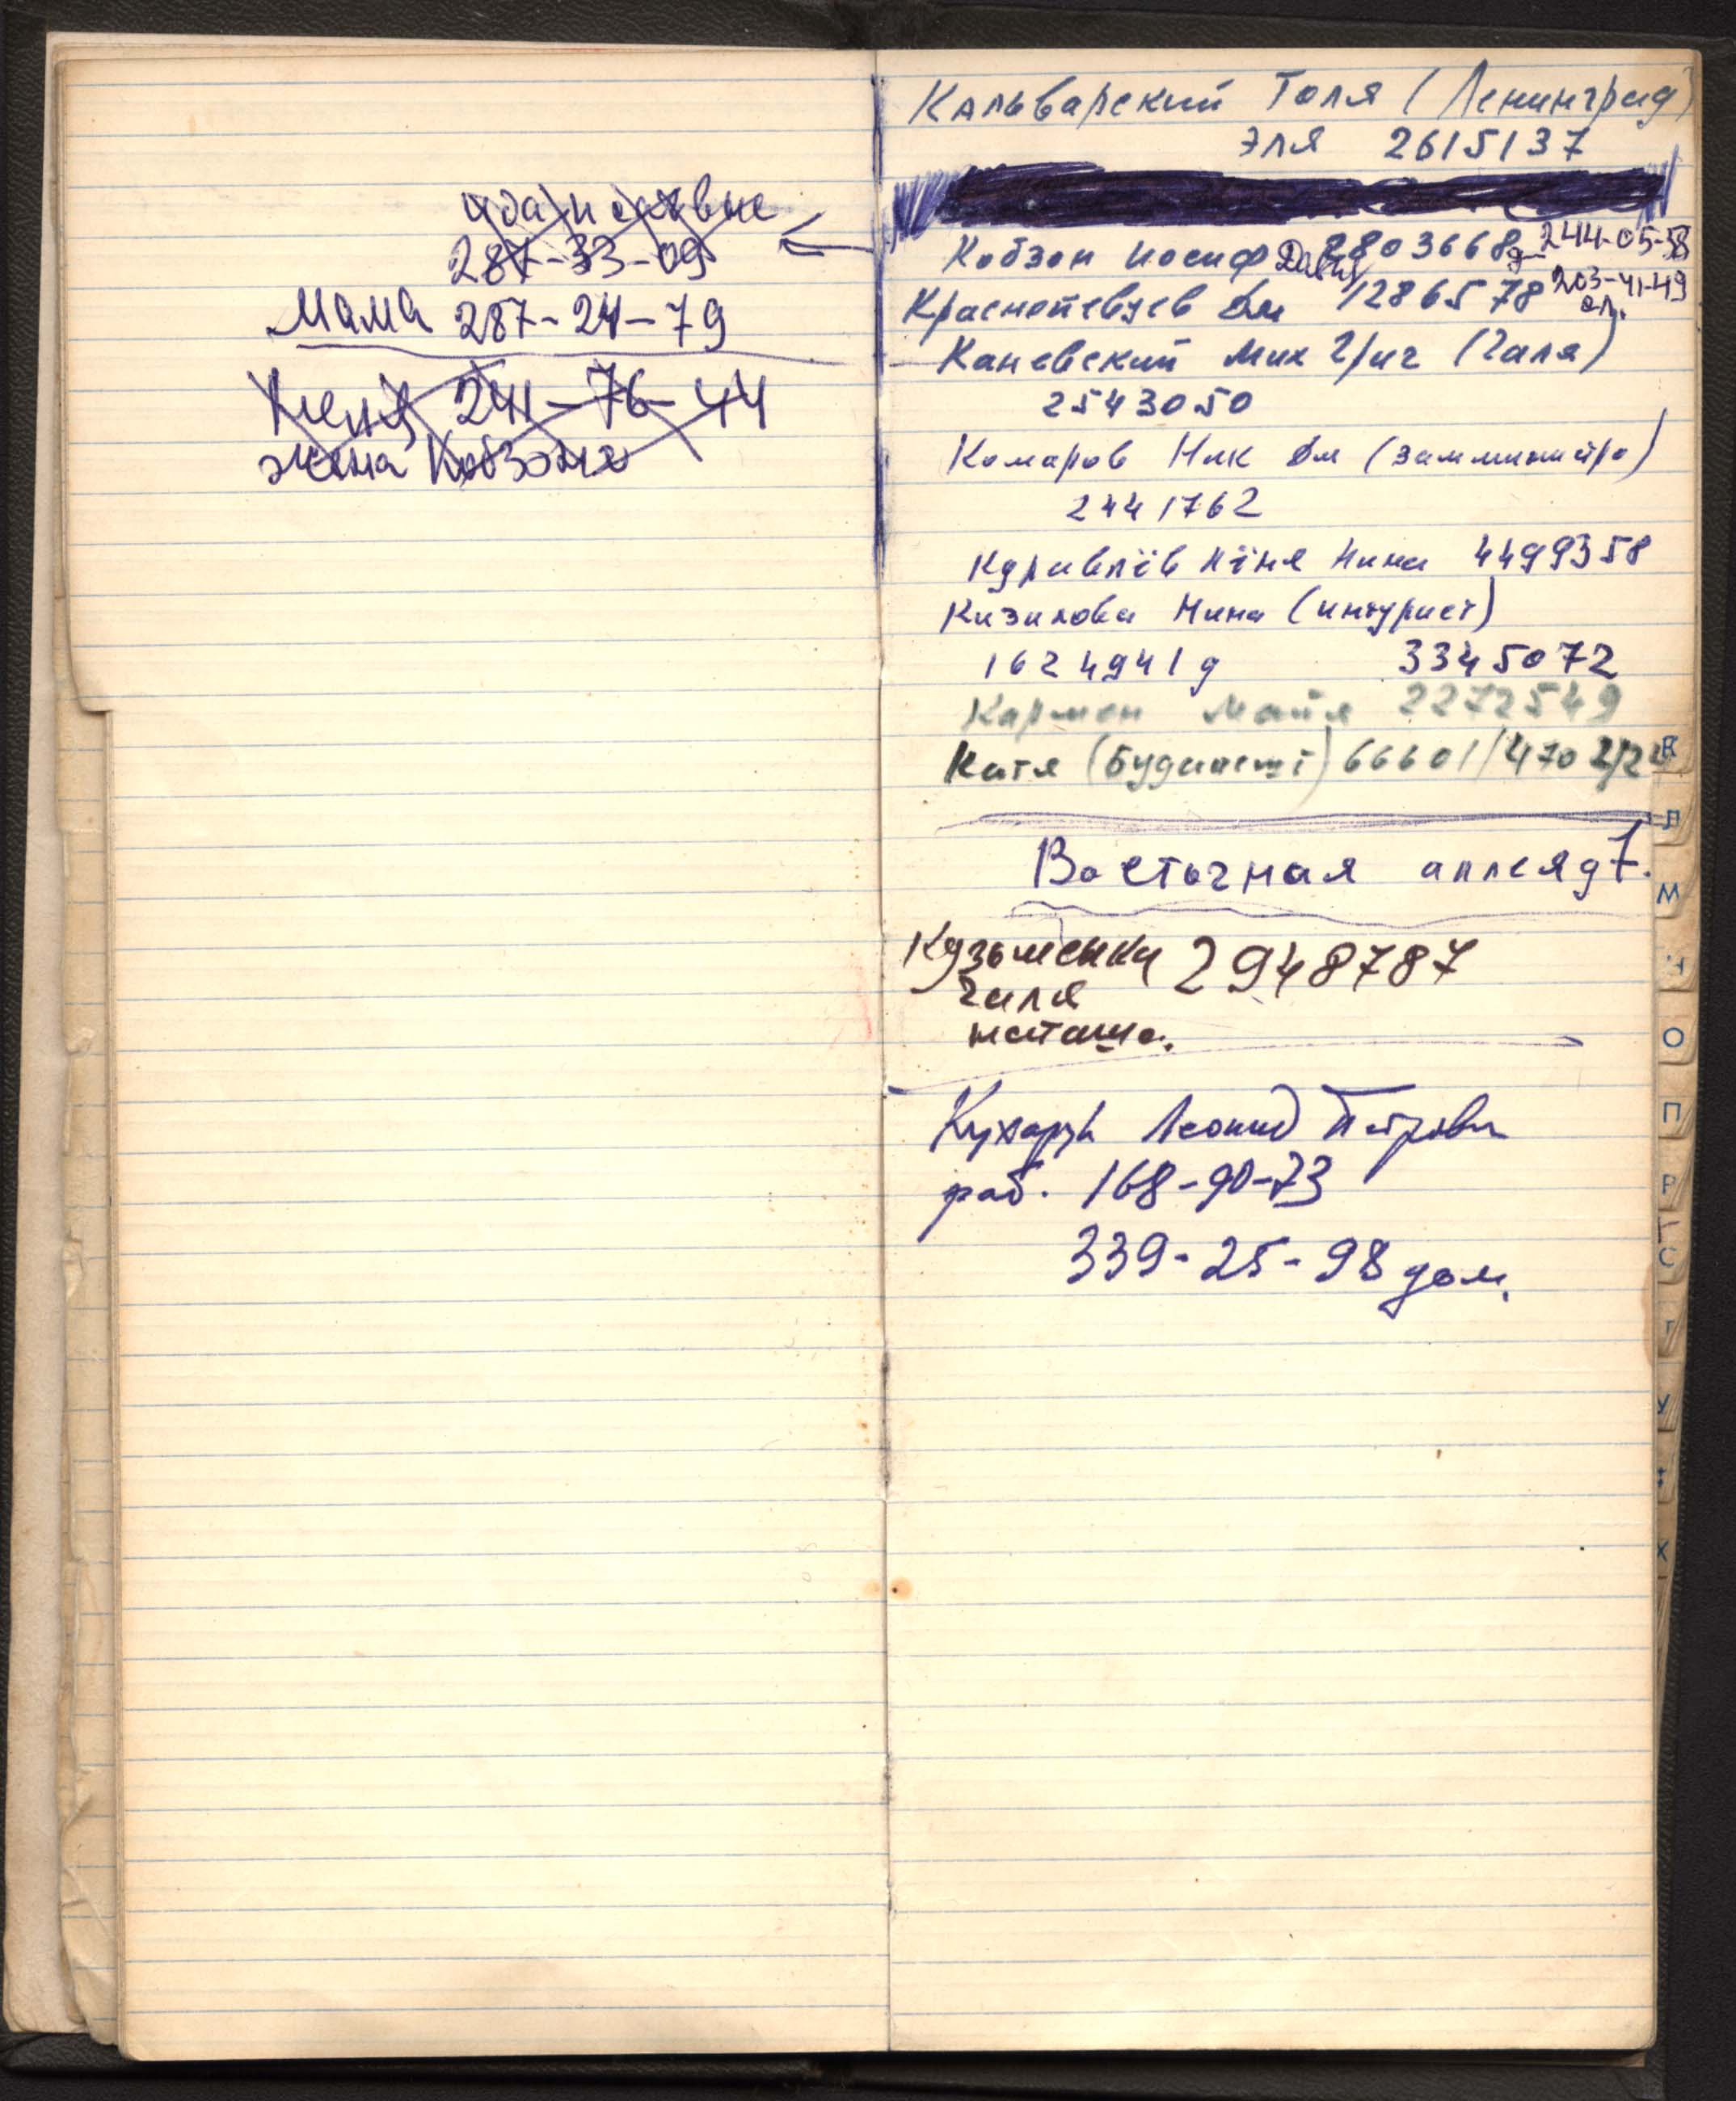 Ида Исаевне
287-33-09
Мама 287-24-79
Неля 241-76-44
жена Кобзона
Кальварский Толя (Ленинград)
Эля 2615137
Кобзон Иосиф Давид 2803668 д 244-05-58
203-41-49
Краснопевцев Дм 1286578
Каневский Мих Григ (Галя)
2543050
Комаров Ник Дм (замминистра)
2441762
Куравлёв Лёня Нина 4499358
Кизилова Нина (интурист)
1624941 д 3345072
Кармен Майя 2272549
Катя (Будапешт) 66601/470
Восточная аллея д 7.
Кузьменки 2948787
Галя
Наташа.
Кухарук Леонид Петрович
раб. 168-90-73
339-25-98 дом.
К
Л
М
О
П
Р
С
Т
У
Х